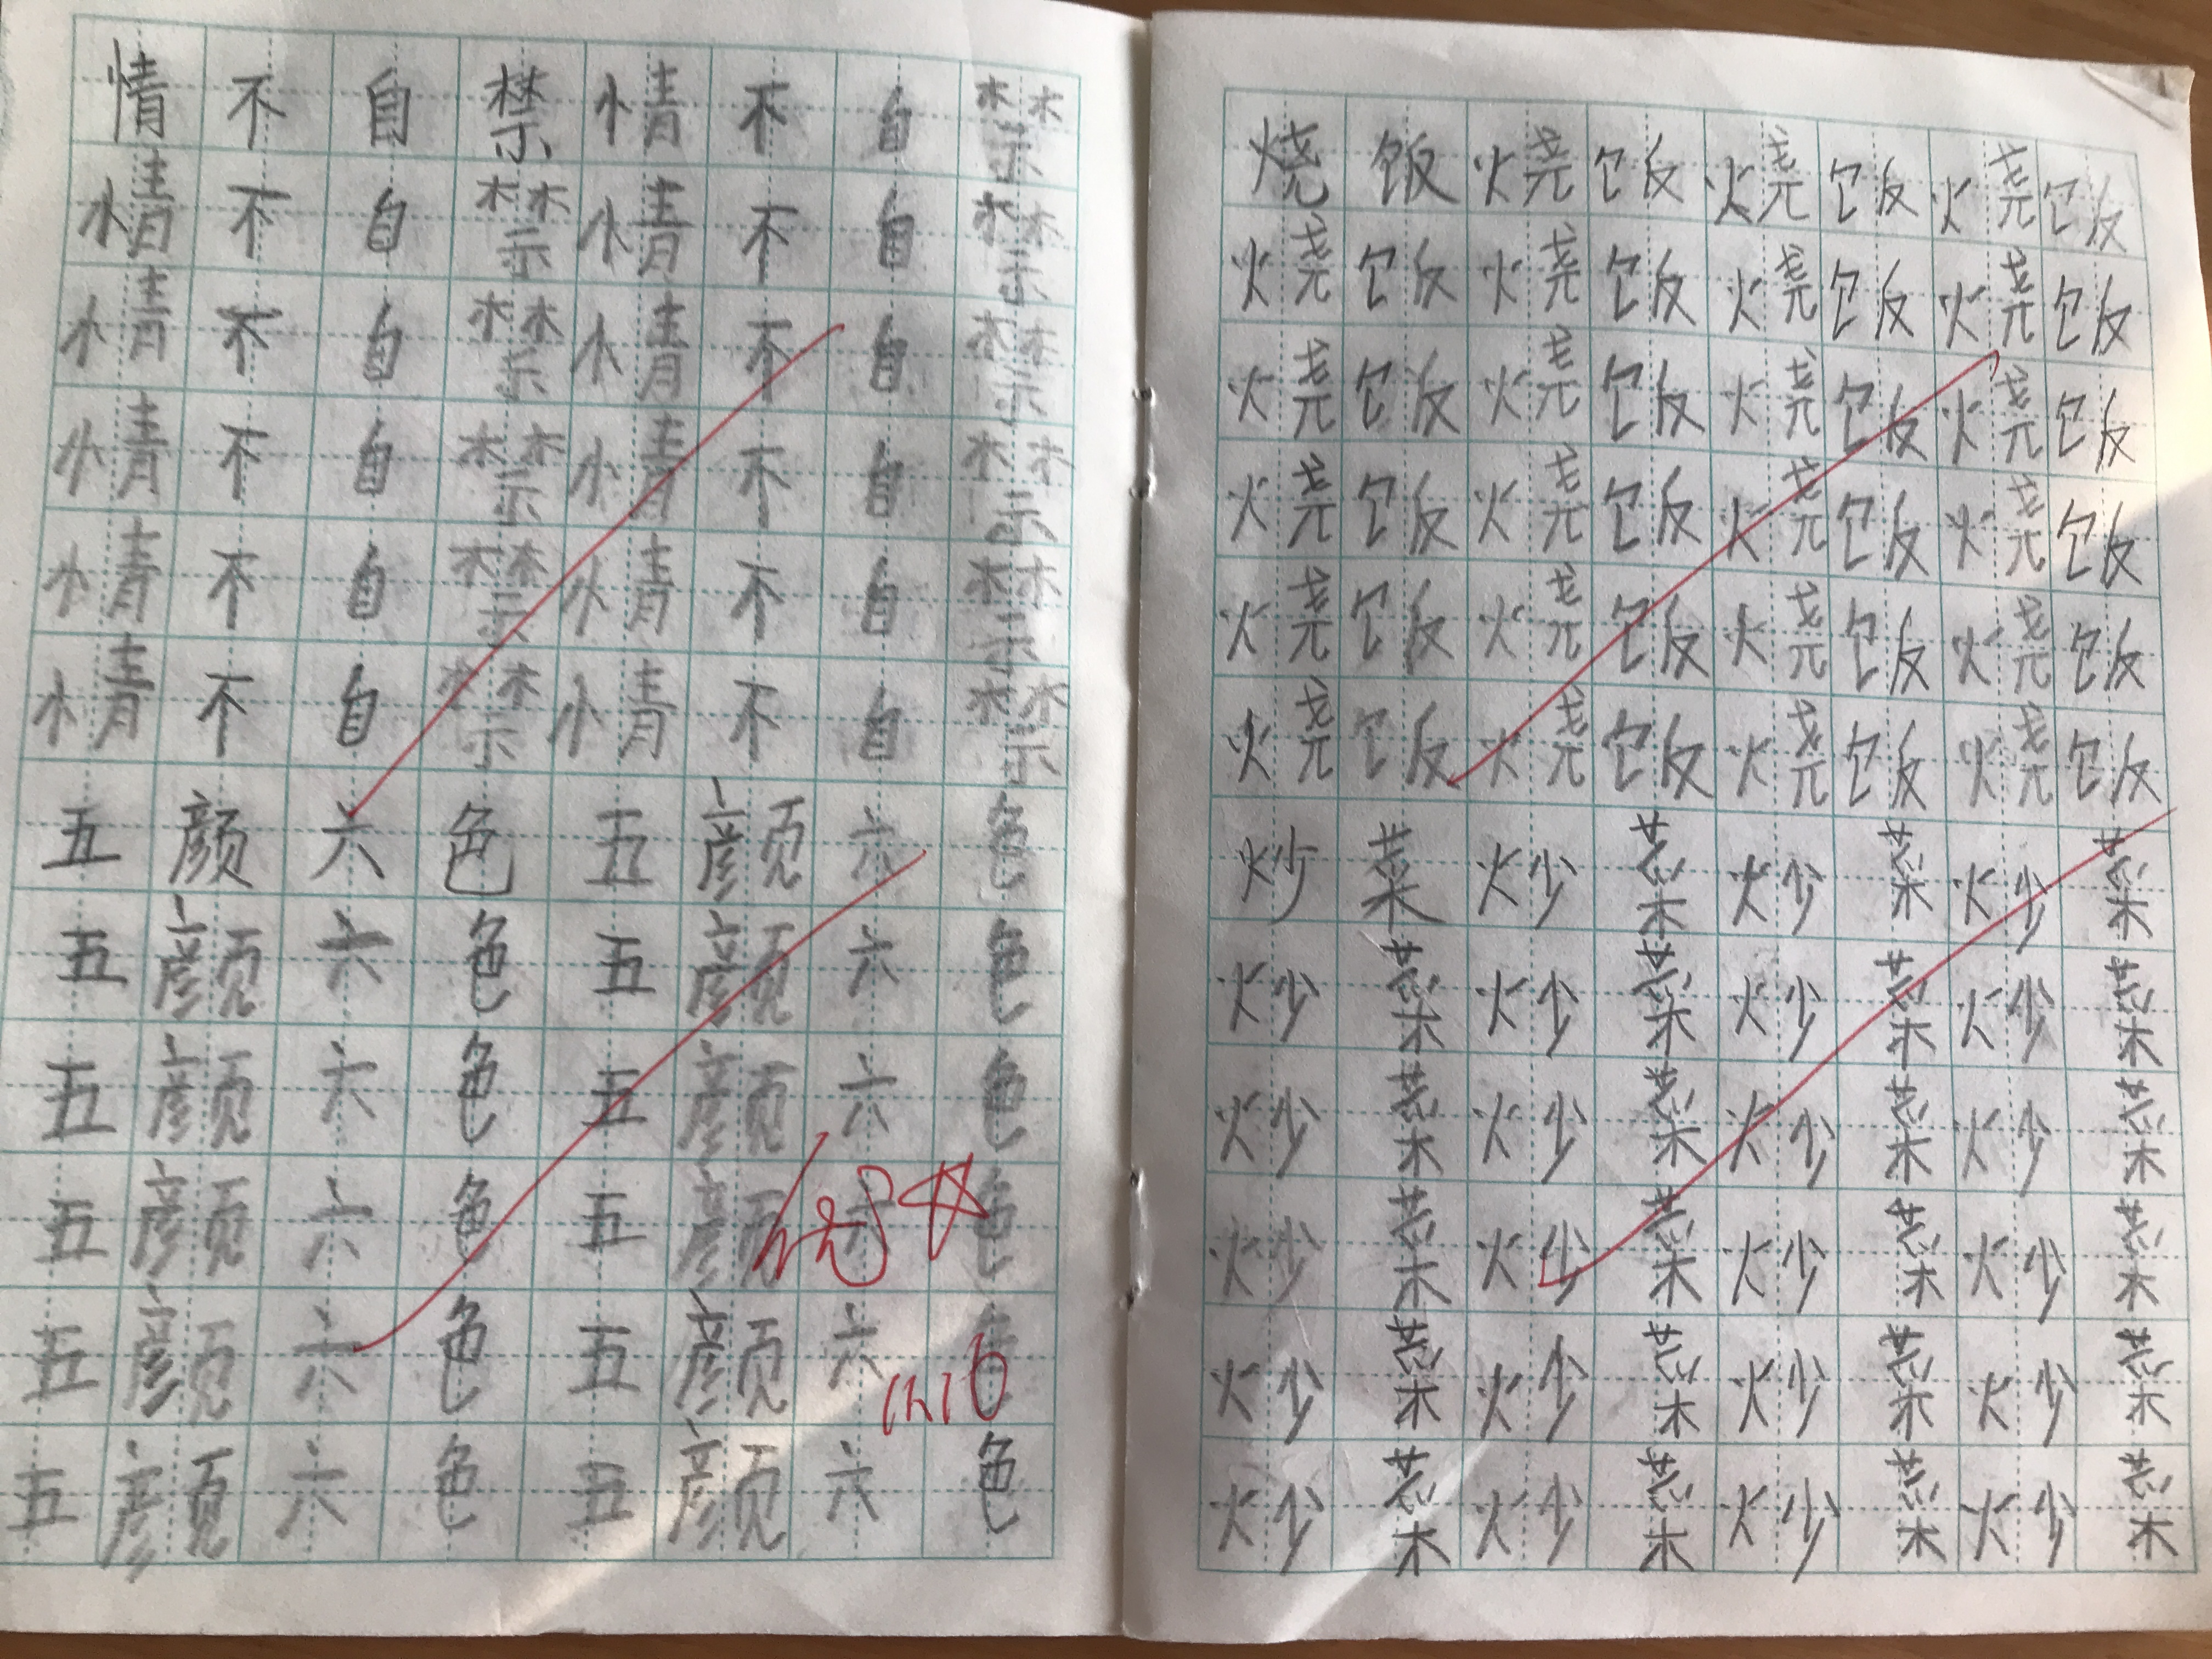 情不自禁情不自禁
情不自禁情不自禁
情不自禁情不自禁
情不自禁情不自禁
情不自禁情不自禁
情不自禁情不自禁
五颜六色五颜六色
五颜六色五颜六色
五颜六色五颜六色
五颜六色五颜六色
五颜六色五颜六色
五颜六色五颜六色
烧饭烧饭烧饭烧饭
烧饭烧饭烧饭烧饭
烧饭烧饭烧饭烧饭
烧饭烧饭烧饭烧饭
烧饭烧饭烧饭烧饭
烧饭烧饭烧饭烧饭
炒菜炒菜炒菜炒菜
炒菜炒菜炒菜炒菜
炒菜炒菜炒菜炒菜
炒菜炒菜炒菜炒菜
炒菜炒菜炒菜炒菜
炒菜炒菜炒菜炒菜